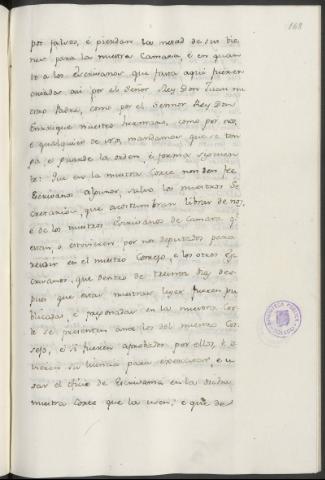 168
por falsos, é pierdan la metad de sus bie-
nes para la nuestra Camara, é en quan-
to a los Escribanos que fasta aqui fueren
criados asi por el Señor Rey Don Juan nu-
estro Padre, como por el Sennor Rey Don
Enrrique nuestro hermano, como por nos,
é qualquier de nos, mandamos que se ten-
ga, é guarde la orden, é forma siguien-
te: Que en la nuestra Corte non den fee
Escribanos algunos, salvo los nuestros Se-
cretarios, que acostumbran librar de nos,
é de los nuestros Escribanos de Camara q.
estan, o estovieren por nos deputados para
residir en el nuestro Consejo, e los otros Es-
crivanos, que dentro de treinta dias des-
pues que estas nuestras leyes fueren pu-
blicadas, é pregonadas en la nuestra Cor-
te se presenten ante los del nuestro Con-
sejo, é si fueren aprobados por ellos, é o-
vieren su licencia para exercitar, e u-
sar el oficio de Escribania en la dicha
nuestra Corte que la usen, é que de